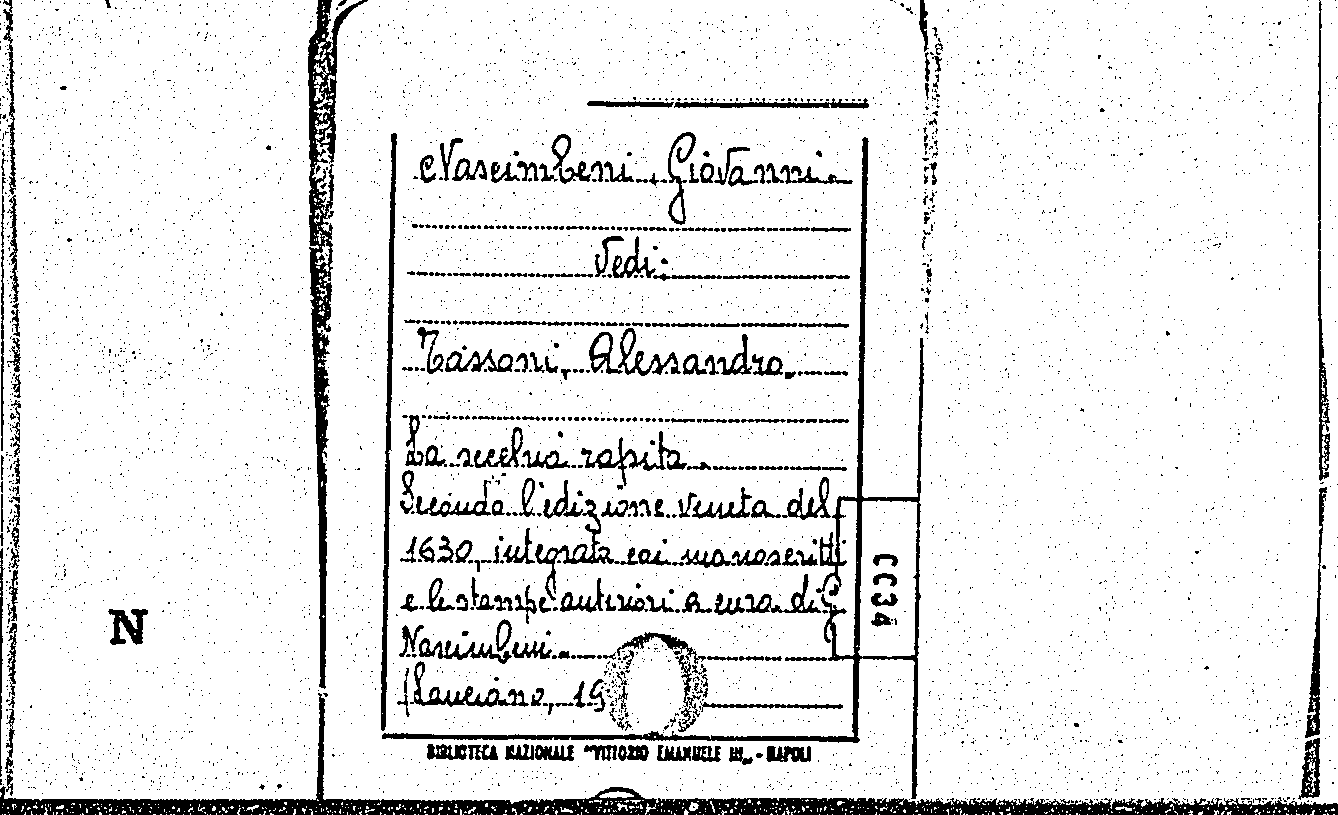 Nascimbeni, Giovanni.
Vedi:
Tassoni, Alessandro.
La secchia rapita.
Secondo l'edizione veneta del
1630, integrata coi manoscritti
e le stampe anteriori a cura di G.
Nascimbeni.
(Lanciano, 19
CC34
N
BIBLIOTECA NAZIONALE "VITTORIO EMANUELE III„ - NAPOLI